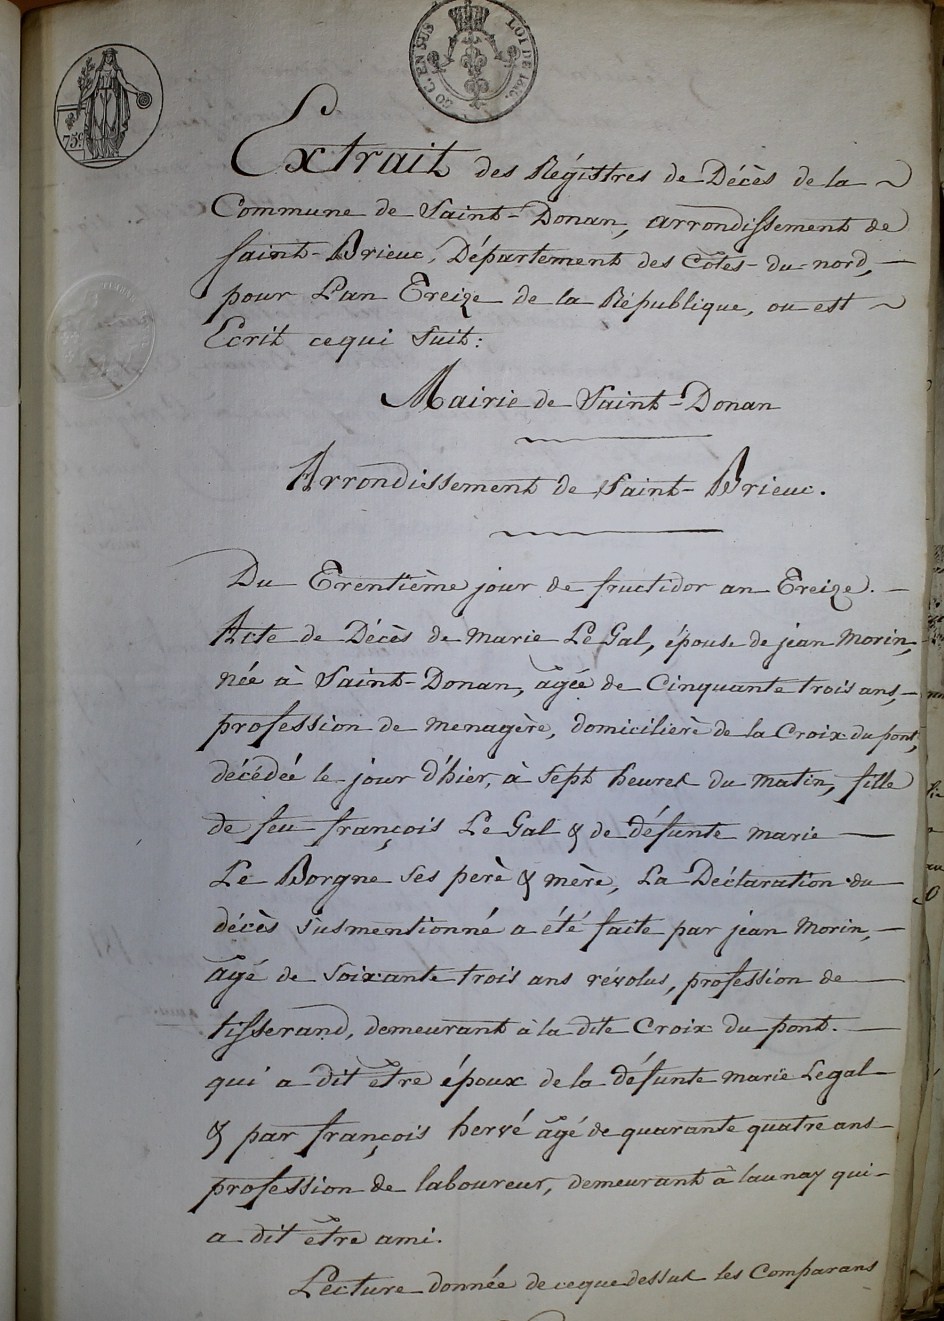 75c
50 C. EN SUS
LOI DE 1816.
Extrait des Régistres de Décès de la ~
Commune de Saint-Donan, arrondissement de
saint-Brieuc, Département des Côtes-du-nord, —
pour L'an Treize de la République, ou est ~
Ecrit cequi suit:
Mairie de Saint-Donan
Arrondissement de Saint-Brieuc.
Du Trentième jour de fructidor an Treize. —
Acte de Décès de marie Le Gal, épouse de jean Morin,
née à Saint-Donan, âgée de Cinquante trois ans, —
profession de menagère, domicilière de la Croix du pont,
décédée le jour d'hier, à sept heures du matin, fille
de feu françois Le Gal & de défunte marie —
Le Borgne ses perè & mère, La Déclaration du
décès susmentionné a été faite par jean Morin, —
âgé de soixante trois ans révolus, profession de —
tisserand, demeurant à la dite Croix du pont. —
qui a dit être époux de la défunte marie Legal —
& par françois hervé âgé de quarante quatre ans —
profession de laboureur, demeurant à launay qui —
a dit être ami.
Lecture donnée de ceque dessus les Comparans